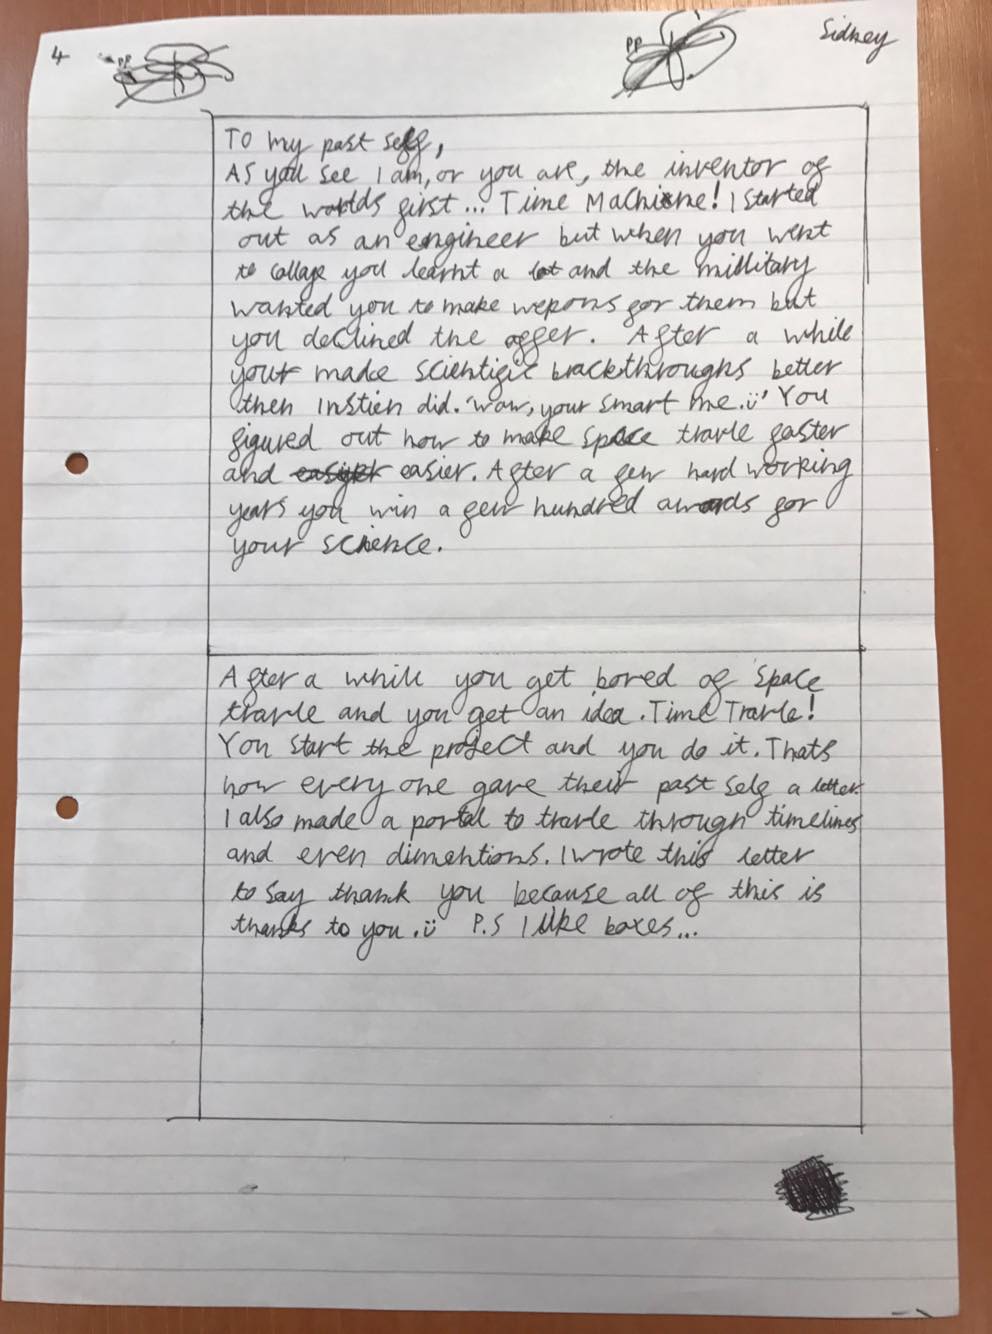 4
Sidney
PP
PP
To my past self,
As you see I am, or you are, the inventor of
the worlds first... Time Machine! I started
out as an engineer but when you went
to collage you learnt a lot and the millitary
wanted you to make wepons for them but
you declined the offer. After a while
your made scientific brackthroughs better
then Instien did. 'Wow, your smart me.ü' You
figured out how to make space travle faster
and easier. After a few hard working
years you win a few hundred awards for
your science.
After a while you get bored of space
travle and you get an idea. Time Travle!
You start the project and you do it. Thats
how every one gave their past self a letter.
I also made a portal to travle through timelines
and even dimentions. I wrote this letter
to say thank you because all of this is
thanks to you.ü P.S I like boxes...